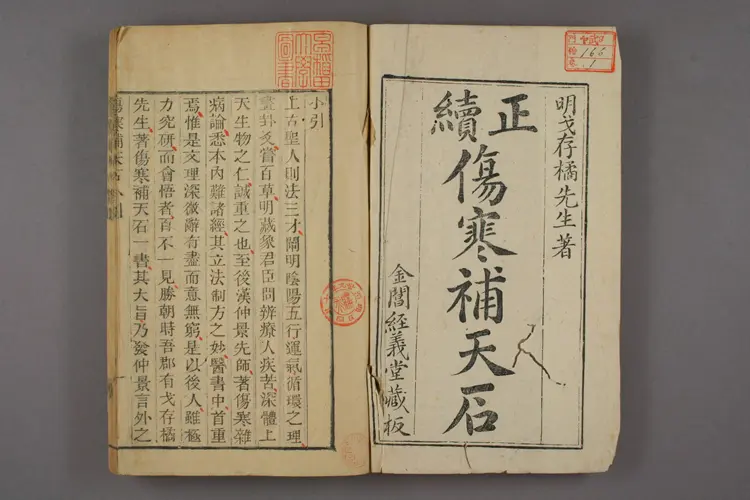 166
1
明戈存橘先生著
正續
傷寒補天石
金閶經義堂藏板
小引
上古聖人則法三才闡明陰陽五行運氣循環之理
畫卦爻嘗百草明藏象君臣問辨療人疾苦深體上
天生物之仁誠重之也至後漢仲景先師著傷寒雜
病論悉本內難諸經其立法制方之妙醫書中首重
焉惟是文理深微辭有盡而意無窮是以後人雖極
力究研而會悟者百不一見勝朝時吾郡有戈存橘
先生著傷寒補天石一書其大旨乃發仲景言外之